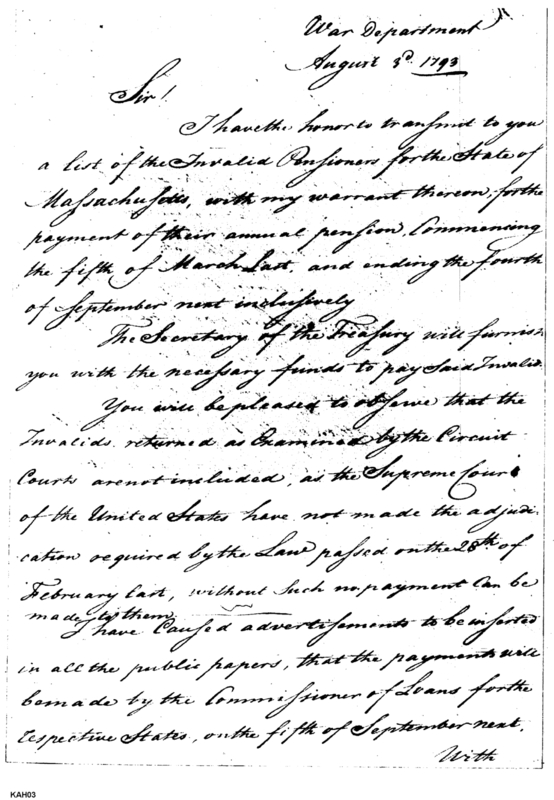 War Department
August 3d. 1793
Sir!
I have the honor to transmit to you
a list of the Invalid Pensioners for the State of
Massachusetts, with my warrant thereon, for the
payment of their annual pension, Commencing
the fifth of March Last, and ending the fourth
of September next inclusively
The Secretary of the Treasury will furnish
you with the necessary funds to pay Said Invalids.
You will be pleased to observe that the
Invalids returned as Examined by the Circuit
Courts are not included, as the Supreme Court
of the United States have not made the adjudi
cation required by the Law passed on the 28th of
February last, without Such no payment Can be
made to them.
I have Caused advertisements to be inserted
in all the public papers, that the payments will
be made by the Commissioner of Loans for the
respective States, on the fifth of September next.
With
KAH03